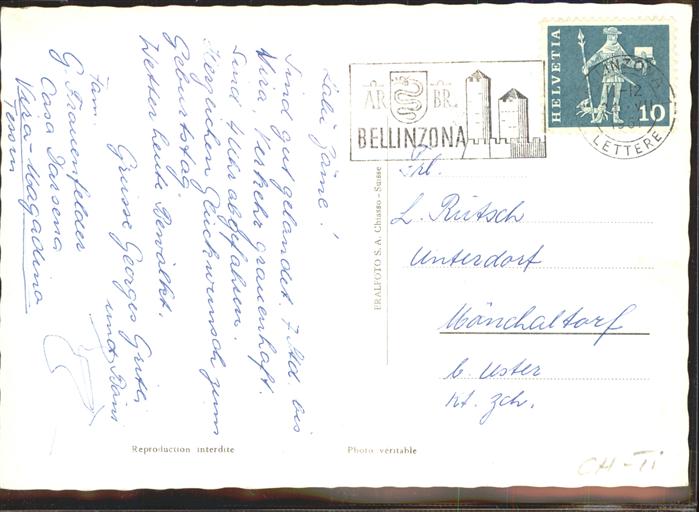 Liebi Jäme!
Sind gut gelandet. 7 Std. bis
Vira, Verkehr grauenhaft.
Sind 4 Uhr abgefahren.
Herzlichen Glückwunsch zum
Geburtstag.
Wetter heute Bewölkt.
Grüsse Georges Gritli
und
Fam.
G. Frauenfelder
Casa Darsena
Vira-Magadino
Tessin
AR BR.
BELLINZONA
HELVETIA
10
LETTERE
Frl.
L. Rütsch
Unterdorf
Mönchaltorf
b. Uster
Kt. Zch.
ERALFOTO S. A. Chiasso - Suisse
Reproduction interdite
Photo véritable
CH-Ti